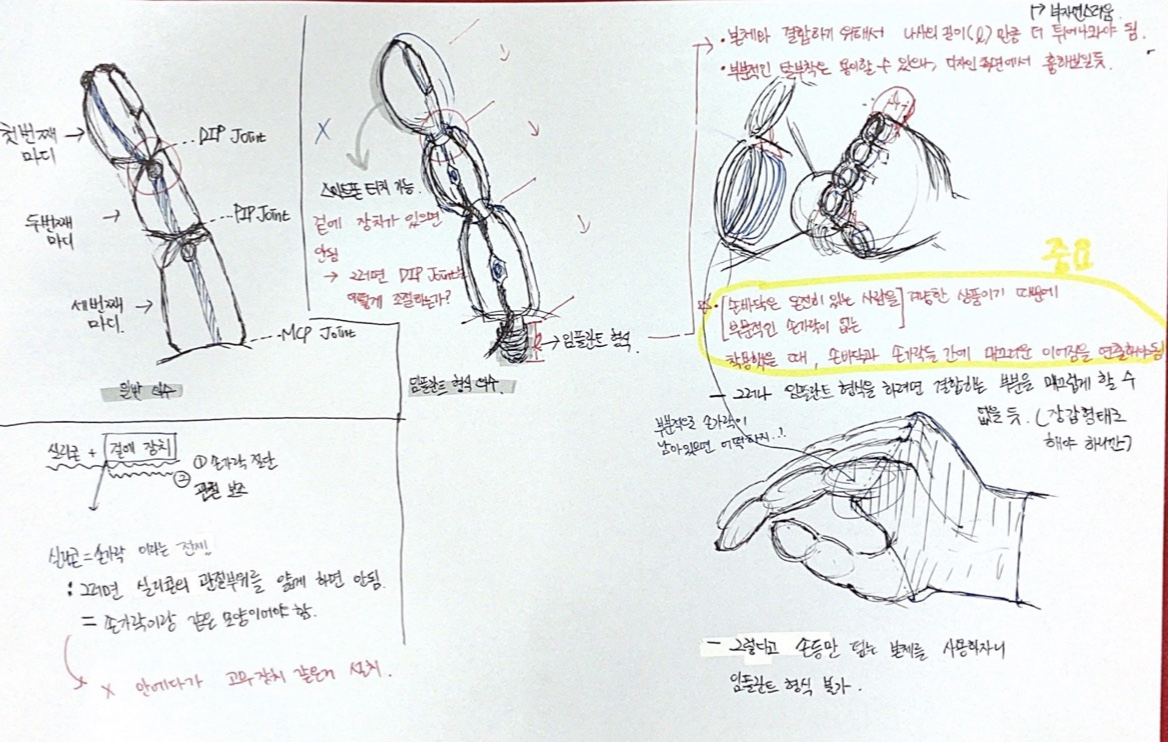 첫번째
마디
DIP Joint
두번째
마디
PIP Joint
세번째
마디.
MCP Joint
일반 의수
스마트폰 터치 가능.
겉에 장치가 있으면
안됨
→ 그러면 DIP Joint는
어떻게 조절하는가?
임플란트 형식
임플란트 형식 의수
실리콘 + 겉에 장치
① 손가락 절단
② 관절 보조
실리콘 = 손가락 이라는 전제!!
: 그러면 실리콘의 관절부위를 얇게 하면 안됨.
= 손가락이랑 같은 모양이어야 함.
x 안에다가 고무장치 같은거 설치.
부자연스러움
• 본체와 결합하기 위해서 나사의 길이(l) 만큼 더 튀어나와야 됨.
• 부분적인 탈부착은 용이할 수 있으나, 디자인 측면에서 흉해보일듯.
중요
[손바닥은 온전히 있는 사람을
부분적인 손가락이 없는] 겨냥한 상품이기 때문에
착용했을 때, 손바닥과 손가락들 간에 매끄러운 이어짐을 연출해야됨
— 그러나 임플란트 형식을 하려면 결합하는 부분을 매끄럽게 할 수
없을 듯. (장갑형태로
해야 하니깐?)
부분적으로 손가락이
남아있으면 어떡하지..!
— 그렇다고 손등만 덮는 본체를 사용하자니
임플란트 형식 불가.